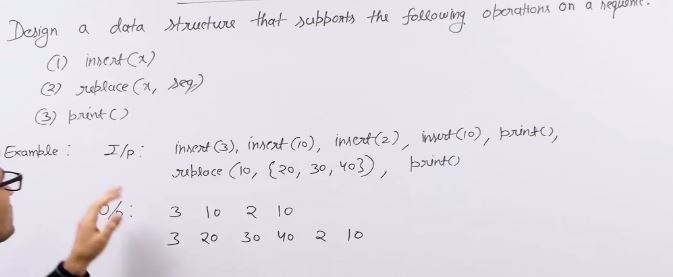 Design a data structure that supports the following operations on a sequence.
(1) insert(x)
(2) replace(x, seq)
(3) print()
Example : I/p : insert(3), insert(10), insert(2), insert(10), print(),
replace(10, {20, 30, 40}), print()
O/p : 3 10 2 10
3 20 30 40 2 10